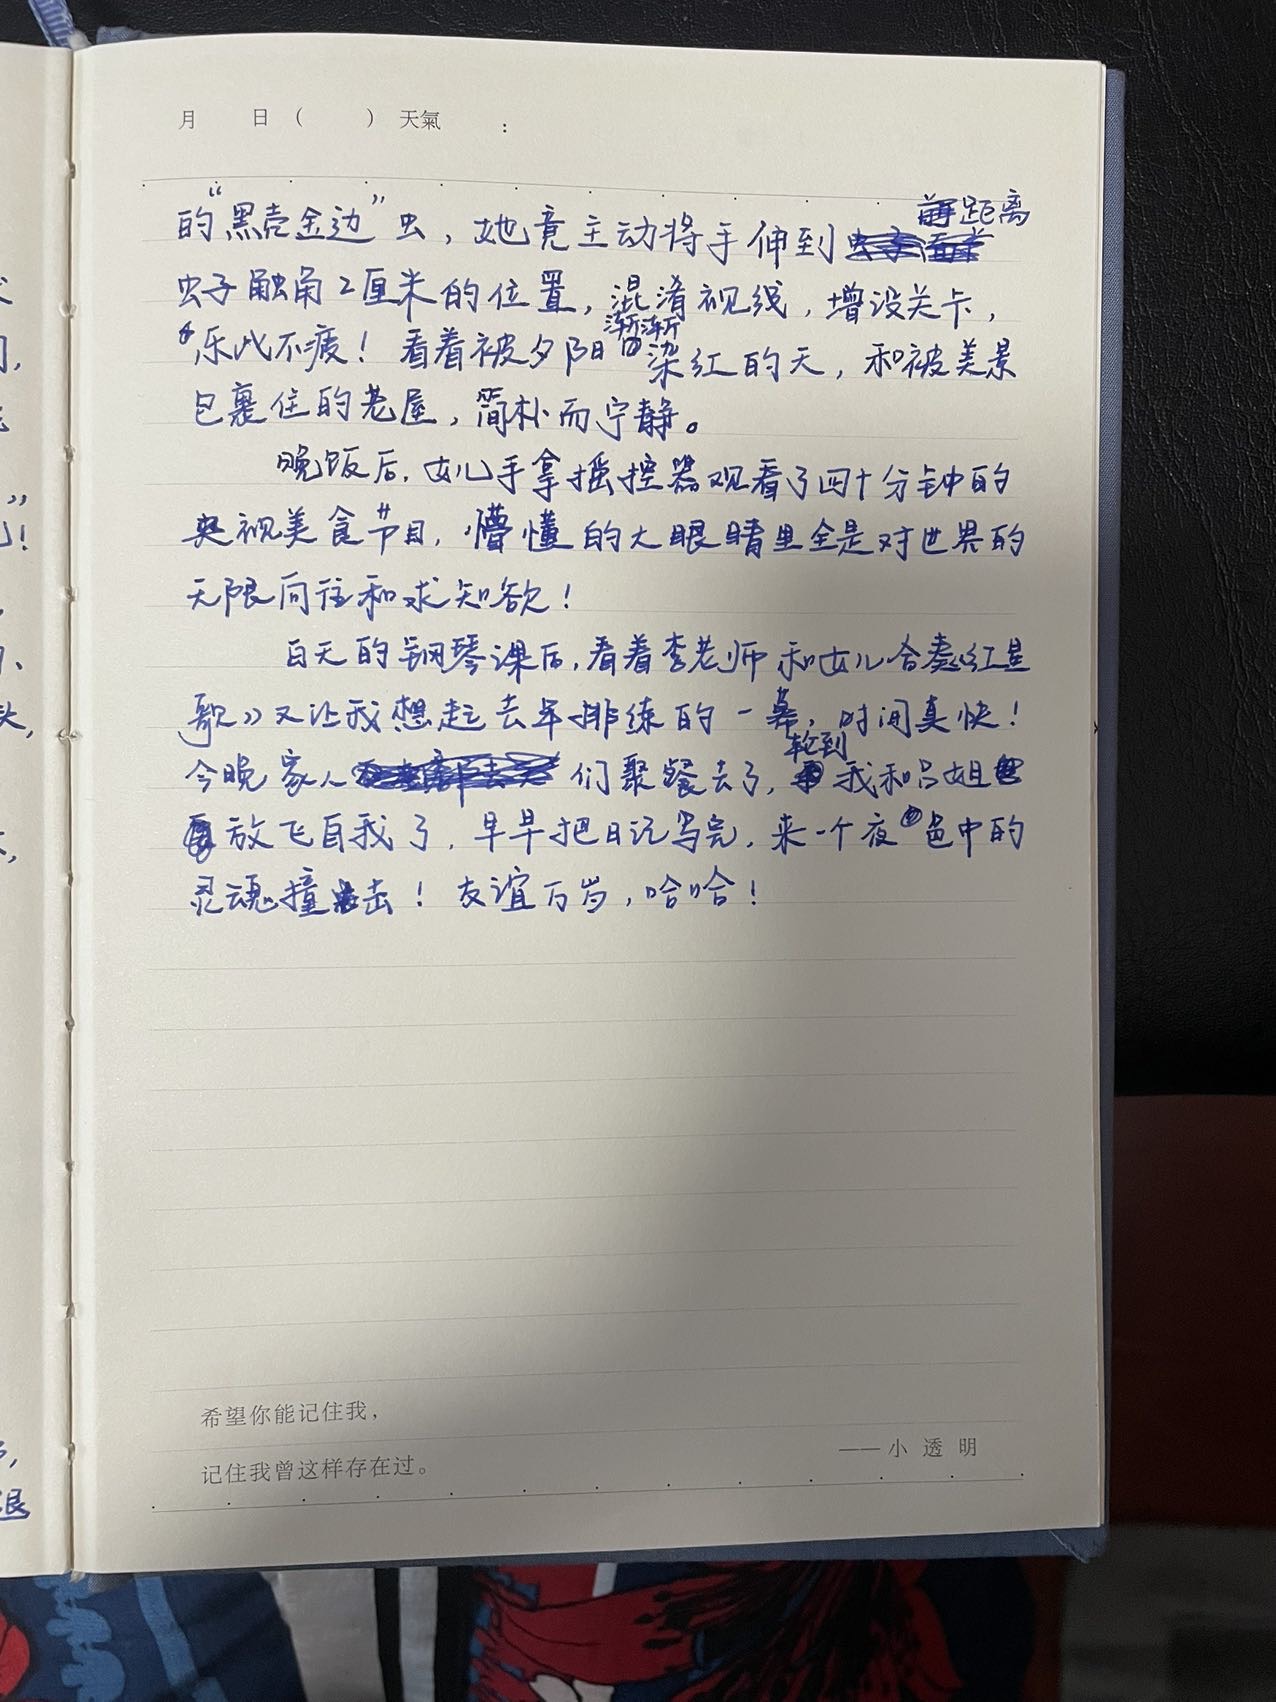 月 日( ) 天氣 :
的“黑壳金边”虫，她竟主动将手伸到距离
虫子触角2厘米的位置，混淆视线，增设关卡，
乐此不疲！看着被夕阳渐渐染红的天，和被美景
包裹住的老屋，简朴而宁静。
晚饭后，女儿手拿摇控器观看了四十分钟的
央视美食节目，懵懂的大眼睛里全是对世界的
无限向往和求知欲！
白天的钢琴课后，看着李老师和女儿合奏《红星
歌》又让我想起去年排练的一幕，时间真快！
今晚家人们聚餐去了，轮到我和吕姐
放飞自我了，早早把日记写完，来一个夜色中的
灵魂撞击！友谊万岁，哈哈！
希望你能记住我，
记住我曾这样存在过。
——小透明